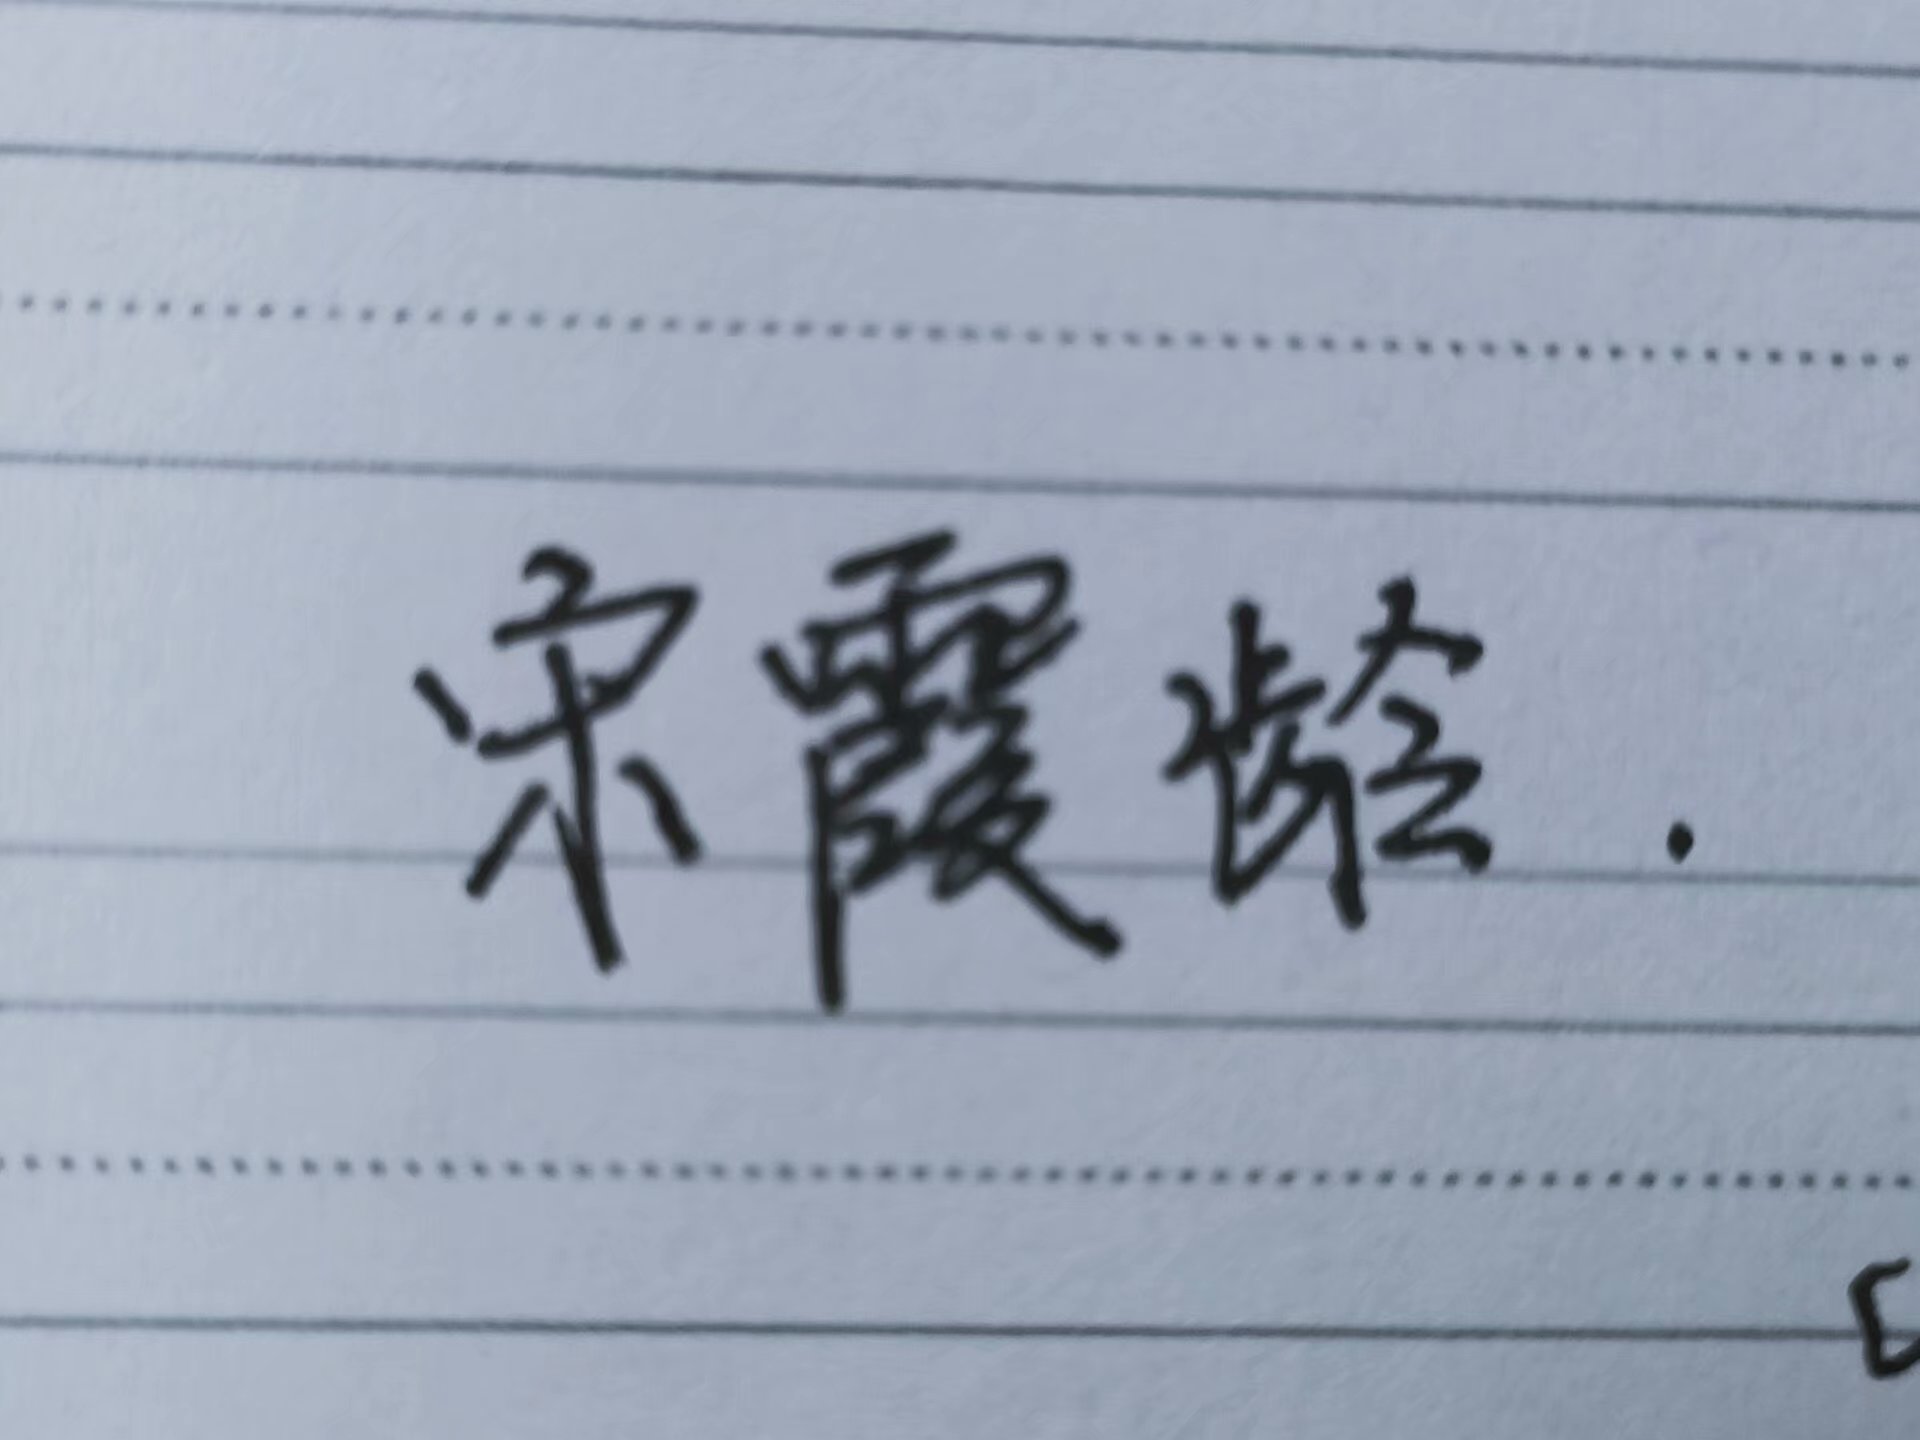 宋霞龄.